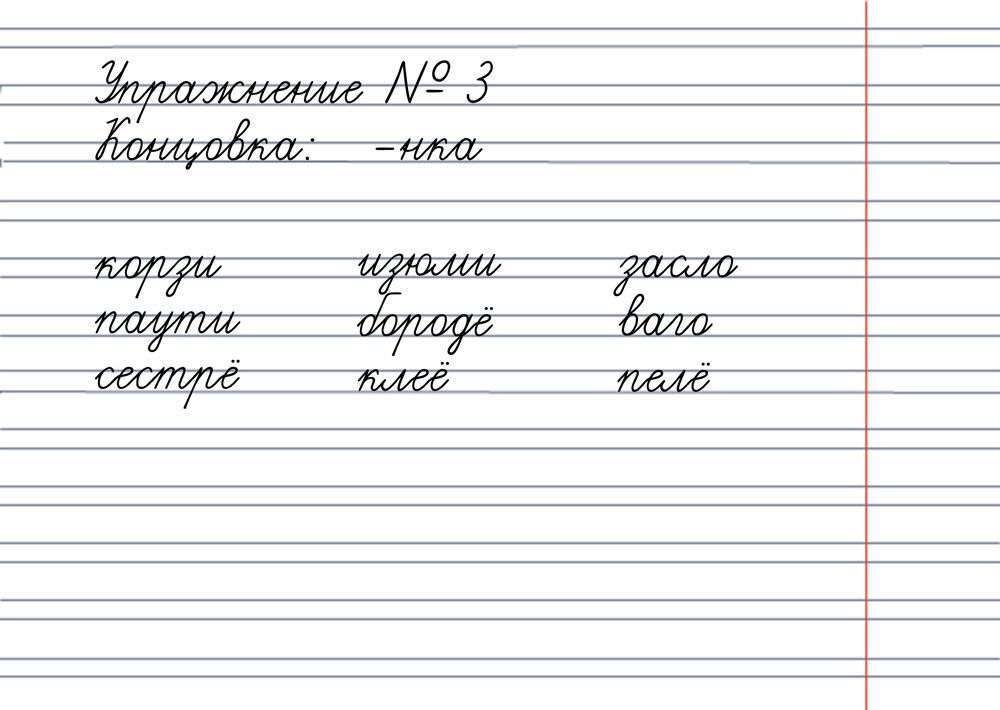 Упражнение № 3
Концовка: -нка
корзи изюми засло
паути бородё ваго
сестрё клеё пелё